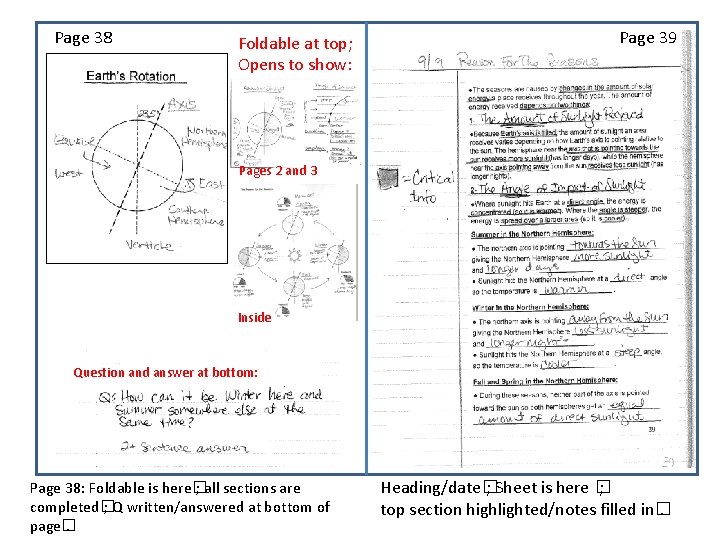 Page 38
Foldable at top;
Opens to show:
Earth's Rotation
Axis
Northern
Hemisphere
Equator
West
East
Southern
Hemisphere
Verticle
Pages 2 and 3
Inside
Question and answer at bottom:
Q: How can it be Winter here and
Summer somewhere else at the
same time?
2+ sentence answer
Page 38: Foldable is here □; all sections are
completed □; Q written/answered at bottom of
page □.
Page 39
9/9 Reason For The Seasons
•The seasons are caused by changes in the amount of solar
energy a place receives throughout the year. The amount of
energy received depends on two things:
1. The Amount of Sunlight Received
•Because Earth's axis is tilted, the amount of sunlight an area
receives varies depending on how Earth's axis is pointing relative to
the sun. The hemisphere nearer the axis that is pointing towards the
sun receives more sunlight (has longer days), while the hemisphere
near the axis pointing away from the sun receives less sunlight (has
longer nights).
= Critical
Info
2. The Angle of Impact of Sunlight
•Where sunlight hits Earth at a direct angle, the energy is
concentrated (so it is warmer). Where the angle is steeper, the
energy is spread over a larger area (so it is cooler).
Summer in the Northern Hemisphere:
• The northern axis is pointing towards the Sun
giving the Northern Hemisphere more sunlight
and longer days
• Sunlight hits the Northern Hemisphere at a direct angle
so the temperature is warmer
Winter in the Northern Hemisphere:
• The northern axis is pointing away from the sun
giving the Northern Hemisphere less sunlight
and longer nights
• Sunlight hits the Northern Hemisphere at a steep angle,
so the temperature is cooler
Fall and Spring in the Northern Hemisphere:
• During these seasons, neither part of the axis is pointed
toward the sun so both hemispheres get an equal
amount of direct sunlight
39
39
Heading/date □; Sheet is here □;
top section highlighted/notes filled in □.